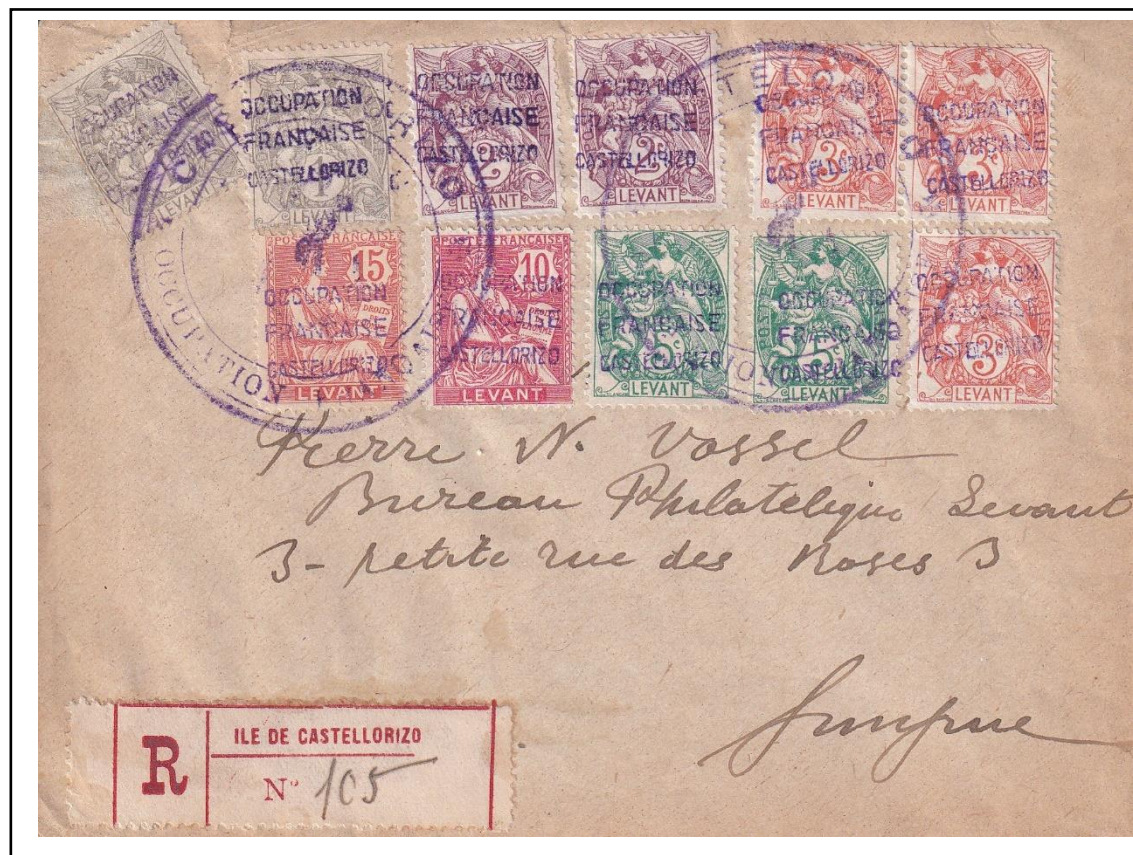 OCCUPATION
FRANÇAISE
CASTELLORIZO
LEVANT
OCCUPATION
FRANÇAISE
CASTELLORIZO
LEVANT
OCCUPATION
FRANÇAISE
CASTELLORIZO
2c
LEVANT
OCCUPATION
FRANÇAISE
CASTELLORIZO
2c
LEVANT
OCCUPATION
FRANÇAISE
CASTELLORIZO
3c
LEVANT
OCCUPATION
FRANÇAISE
CASTELLORIZO
3c
LEVANT
POSTE FRANÇAISE
15
OCCUPATION
FRANÇAISE
CASTELLORIZO
LEVANT
POSTE FRANÇAISE
10
OCCUPATION
FRANÇAISE
CASTELLORIZO
LEVANT
OCCUPATION
FRANÇAISE
CASTELLORIZO
5c
LEVANT
OCCUPATION
FRANÇAISE
CASTELLORIZO
5c
LEVANT
OCCUPATION
FRANÇAISE
CASTELLORIZO
3c
LEVANT
OCCUPATION
Pierre N. Vassel
Bureau Philateliqu Levant
3 - petite rue des Roses 3
Smyrne
R
ILE DE CASTELLORIZO
N° 105